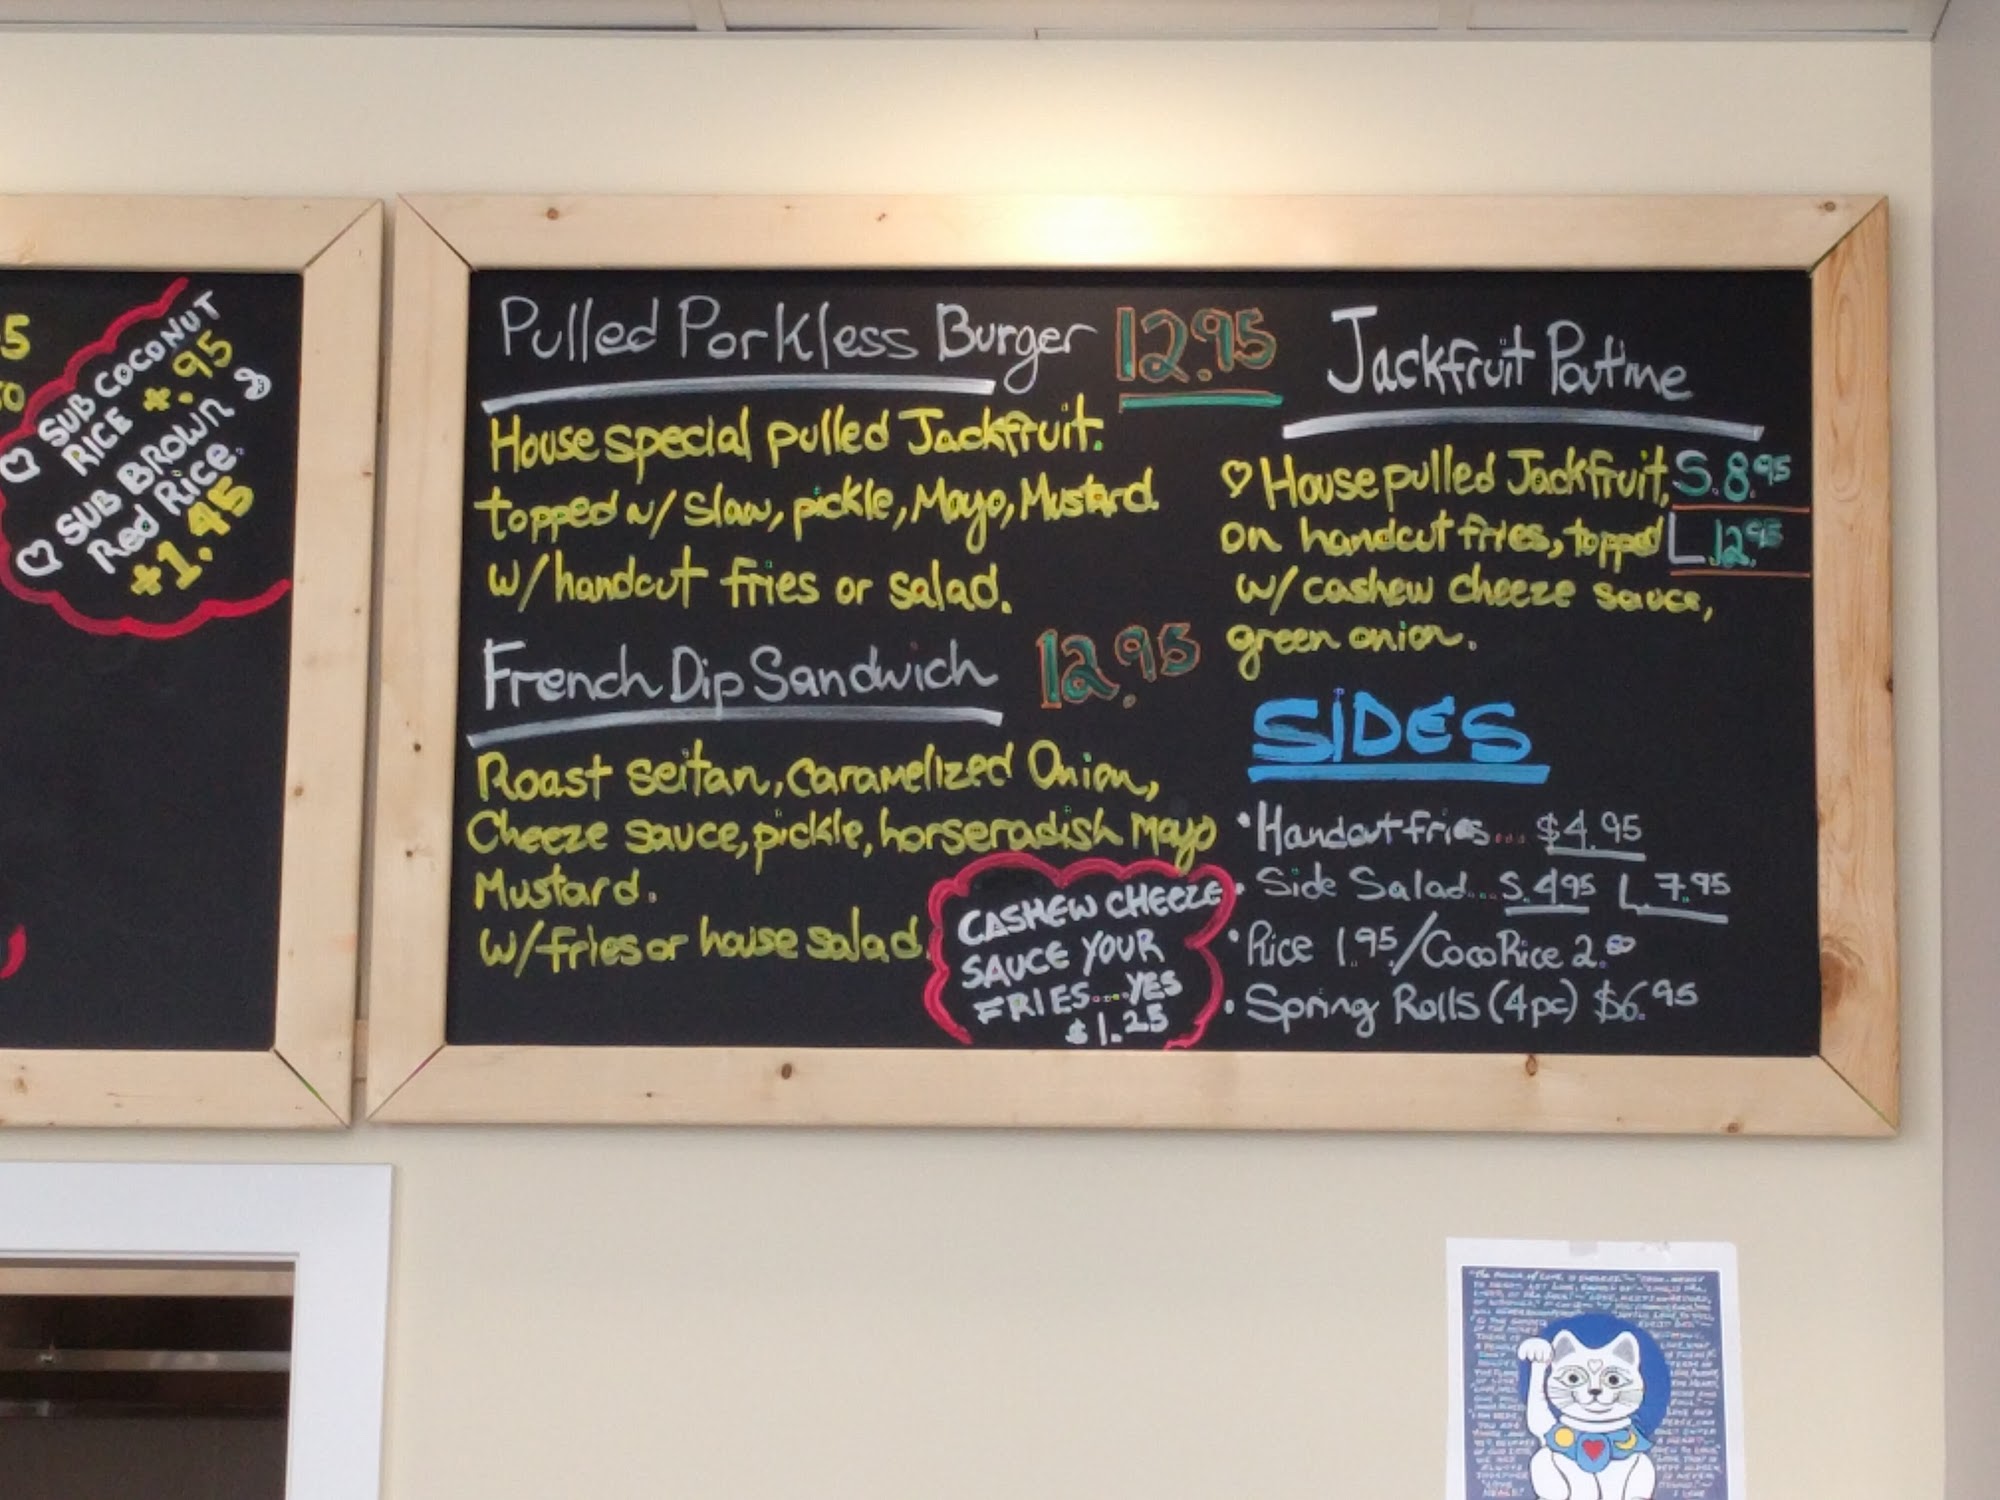 SUB COCONUT
RICE +.95
SUB BROWN &
Red Rice.
+1.45
Pulled Porkless Burger 12.95
House special pulled Jackfruit.
topped w/ slaw, pickle, Mayo, Mustard.
w/handcut fries or salad.
French Dip Sandwich 12.95
Roast seitan, caramelized Onion,
Cheeze sauce, pickle, horseradish Mayo
Mustard.
w/fries or house salad.
CASHEW CHEEZE
SAUCE YOUR
FRIES....YES
$1.25
Jackfruit Poutine
House pulled Jackfruit, S.8.95
on handcut fries, topped L.12.95
w/ cashew cheeze sauce,
green onion.
SIDES
• Handcut fries... $4.95
• Side Salad... S.4.95 L.7.95
• Rice 1.95/Coco Rice 2.50
• Spring Rolls (4pc) $6.95